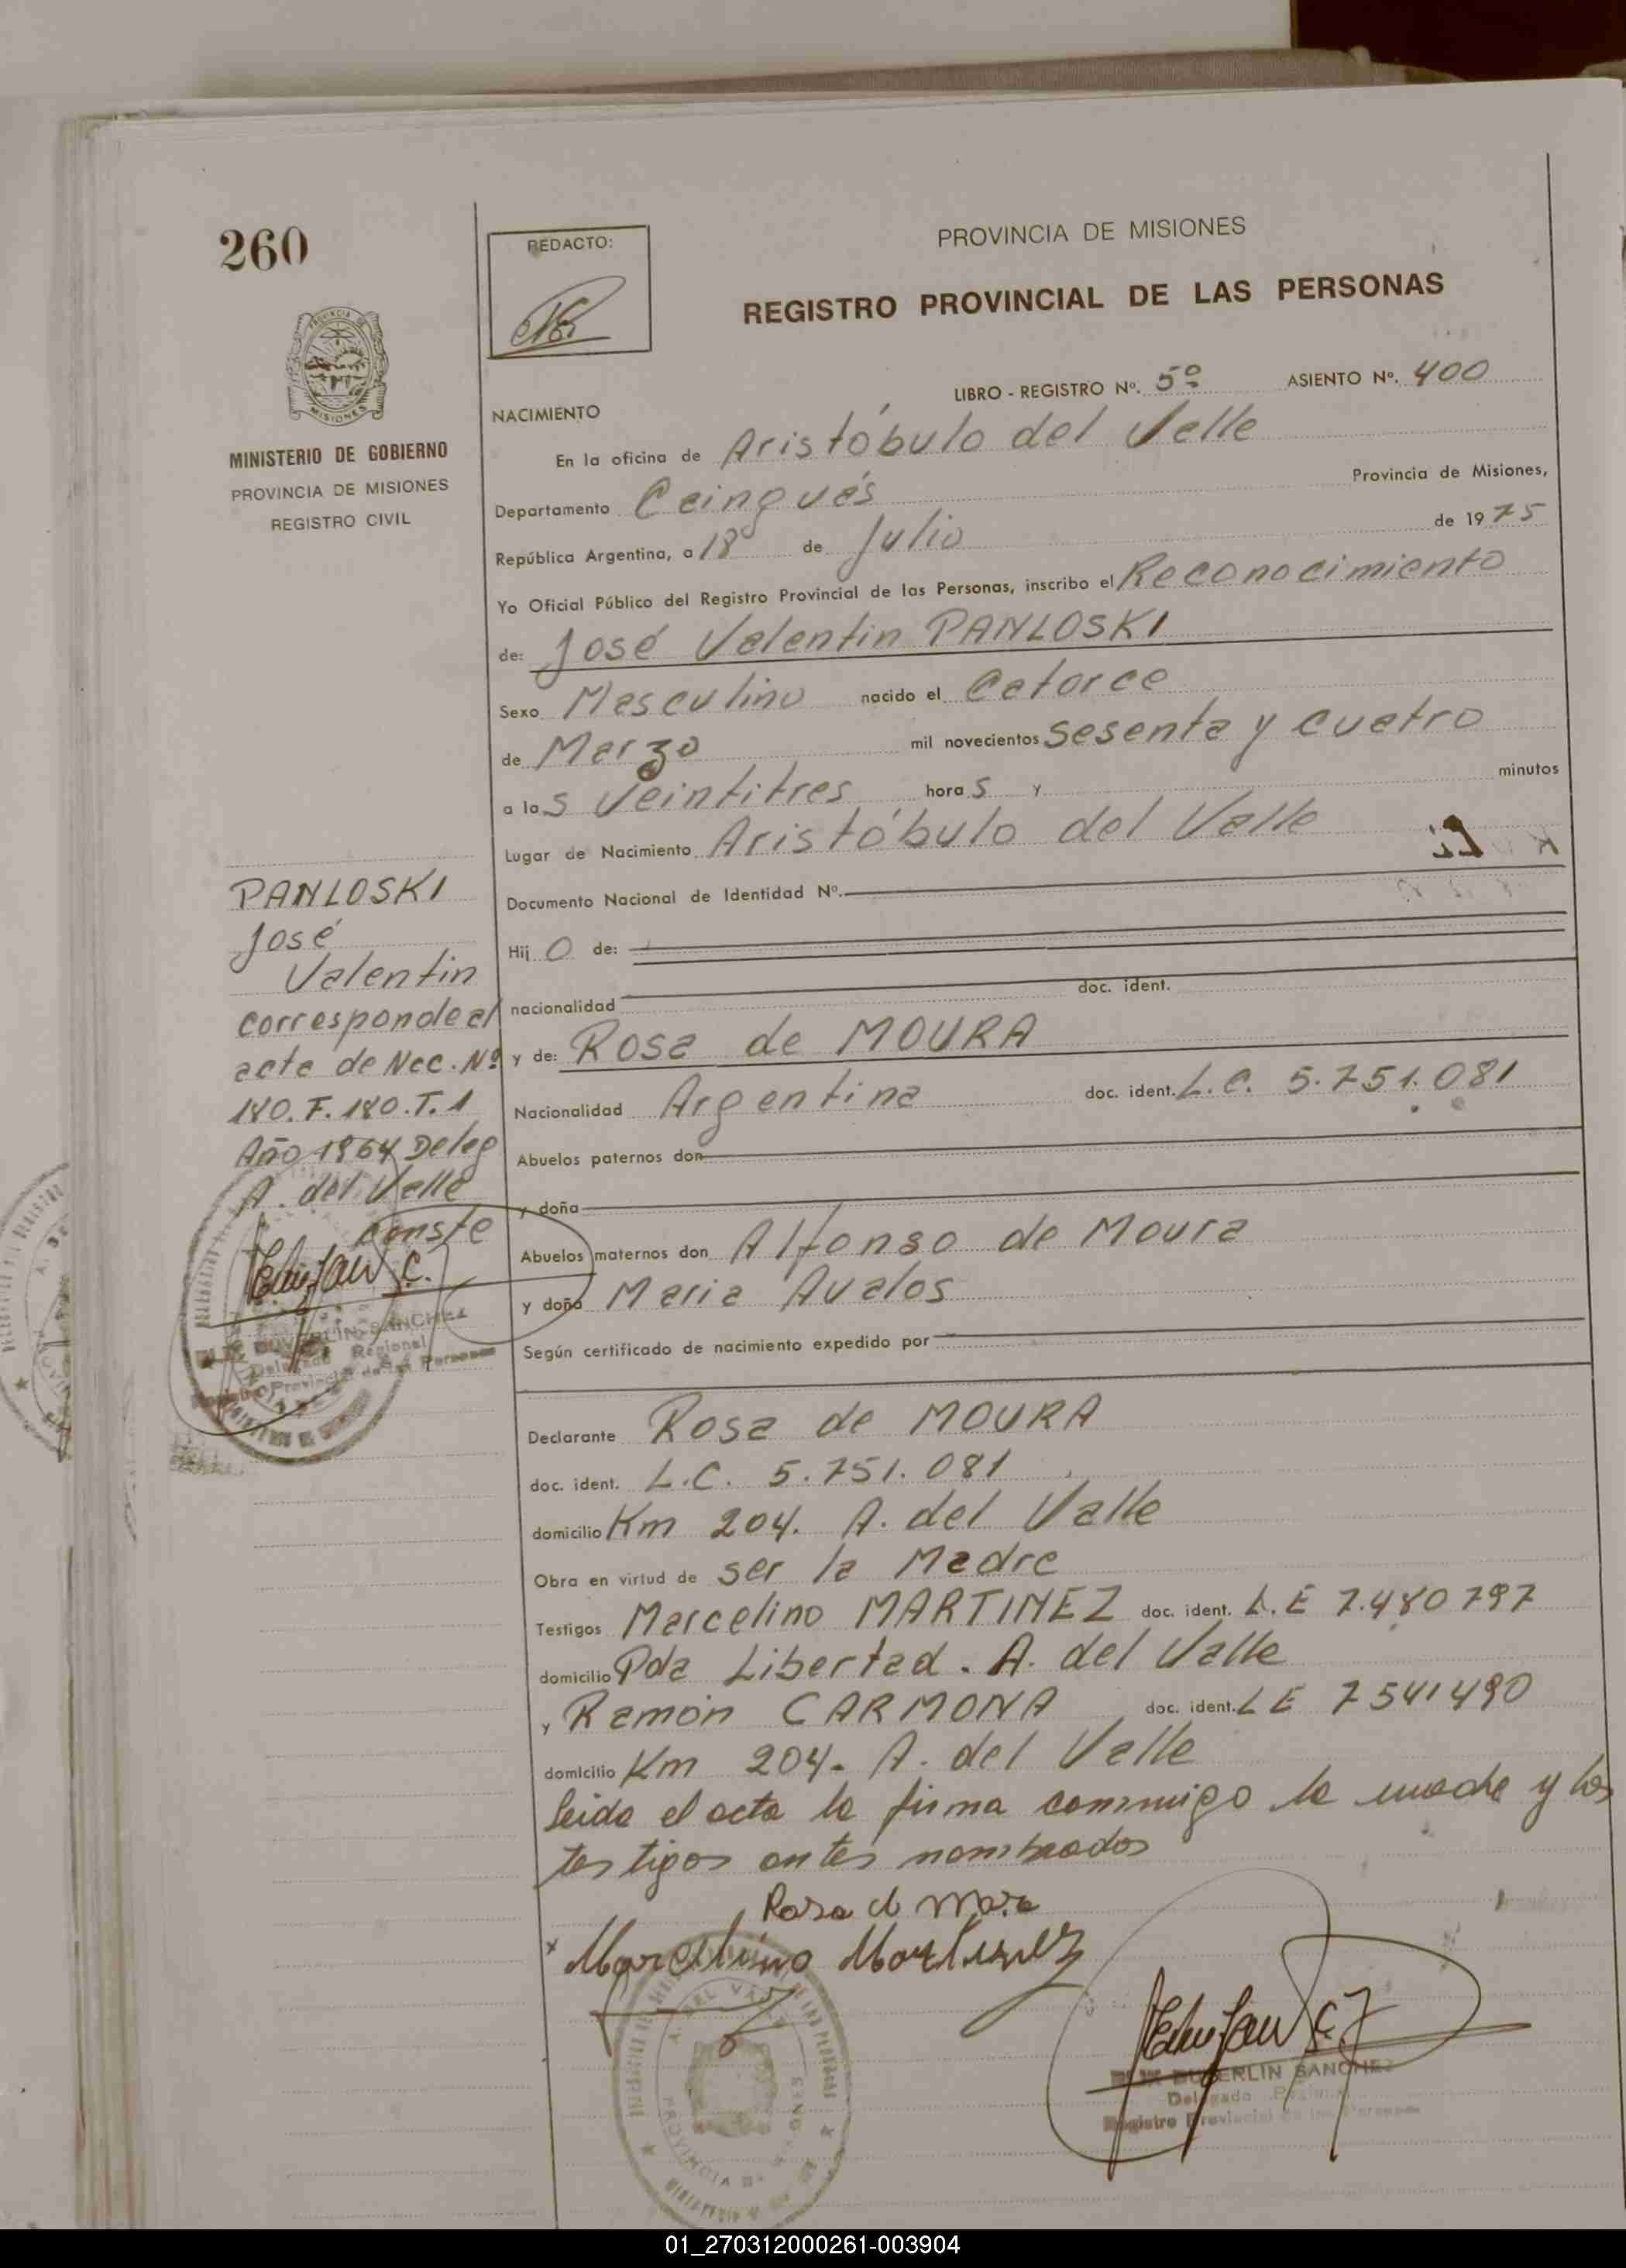 260
REDACTO:
PROVINCIA DE MISIONES
REGISTRO PROVINCIAL DE LAS PERSONAS
PROVINCIA DE
MISIONES
MINISTERIO DE GOBIERNO
PROVINCIA DE MISIONES
REGISTRO CIVIL
LIBRO - REGISTRO Nº. 5º ASIENTO Nº. 400
NACIMIENTO
En la oficina de Aristóbulo del Valle
Departamento Caingués Provincia de Misiones,
República Argentina, a 18 de Julio de 1975
Yo Oficial Público del Registro Provincial de las Personas, inscribo el Reconocimiento
de: José Valentin PANLOSKI
Sexo Masculino nacido el Catorce
de Marzo mil novecientos sesenta y cuatro
a las veintitres horas y minutos
Lugar de Nacimiento Aristóbulo del Valle
Documento Nacional de Identidad Nº.
Hijo de:
nacionalidad doc. ident.
y de: Rosa de MOURA
Nacionalidad Argentina doc. ident. L.C. 5.751.081
Abuelos paternos don
y doña
Abuelos maternos don Alfonso de Moura
y doña Maria Avalos
Según certificado de nacimiento expedido por
PANLOSKI
José
Valentin
corresponde al
acta de Nac. Nº
180. F. 180. T. 1
Año 1964 Deleg
A. del Valle
conste
DUVERLIN SANCHEZ
Delegado Regional
Registro Provincial de las Personas
Declarante Rosa de MOURA
doc. ident. L.C. 5.751.081
domicilio Km 204. A. del Valle
Obra en virtud de ser la Madre
Testigos Marcelino MARTINEZ doc. ident. L.E 7.480797
domicilio Pda Libertad. A. del Valle
y Ramón CARMONA doc. ident. LE 7541490
domicilio Km 204. A. del Valle
leida el acta la firma conmigo la madre y los
testigos antes nombrados
Rosa d Mora
x Marcelino Martinez
DUVERLIN SANCHEZ
Delegado Regional
Registro Provincial de las Personas
01_270312000261-003904